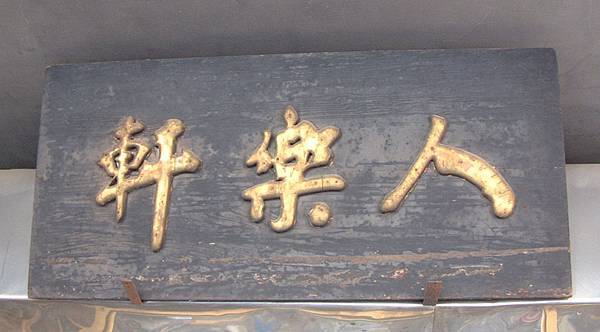 人樂軒